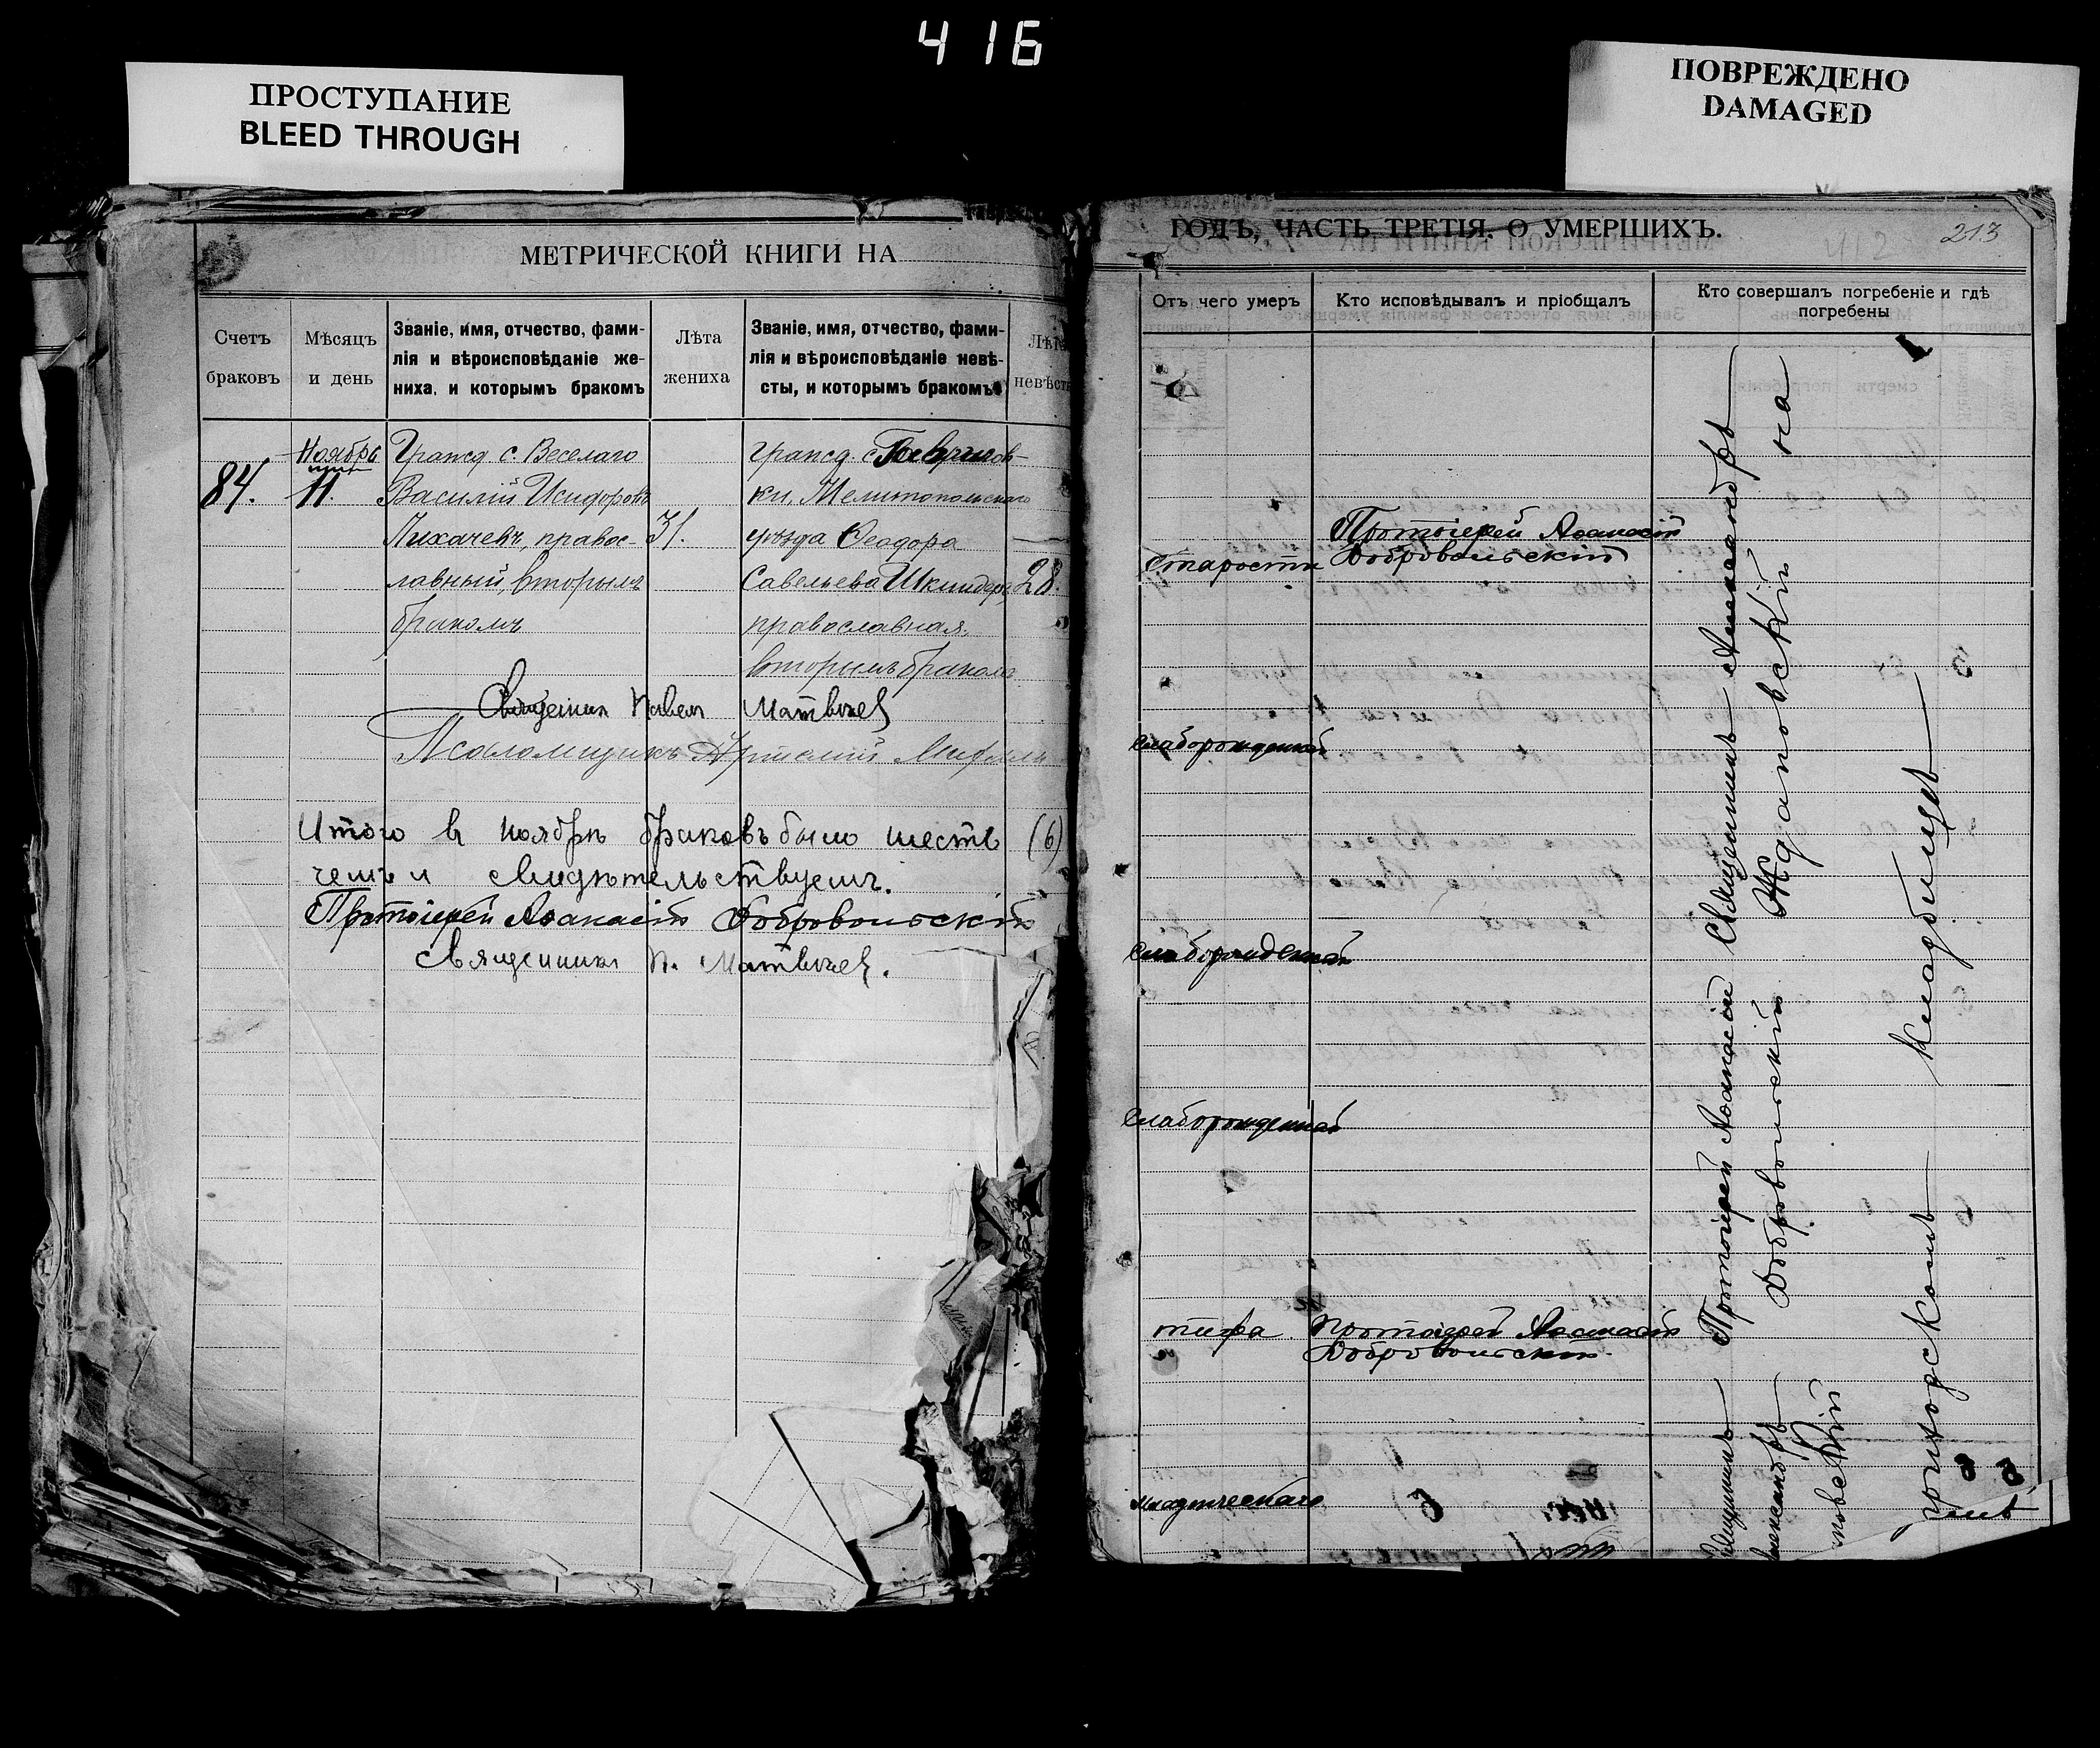 416
ПРОСТУПАНИЕ
BLEED THROUGH
ПОВРЕЖДЕНО
DAMAGED
МЕТРИЧЕСКОЙ КНИГИ НА
Счетъ браковъ
Мѣсяцъ и день
Званіе, имя, отчество, фами-
лія и вѣроисповѣданіе же-
ниха, и которымъ бракомъ
Лѣта жениха
Званіе, имя, отчество, фами-
лія и вѣроисповѣданіе невѣ-
сты, и которымъ бракомъ
84.
Ноябрь
11.
Гражд. с. Веселаго
Василій Исидоровъ
Лихачевъ, правос-
лавный, вторымъ
бракомъ
31.
гражд. с.
ки, Мелитопольскаго
уѣзда Ѳеодора
Савельева
православная,
вторымъ бракомъ
28.
Священник Павел Матвѣев
Псаломщикъ
Итого в ноябрѣ браковъ было шесть (6)
чем и свидѣтельствуемъ.
Протоіерей Аѳанасій Добровольскій
Священник П. Матвѣев.
ГОДЪ, ЧАСТЬ ТРЕТІЯ, О УМЕРШИХЪ.
213
412
Отъ чего умеръ
Кто исповѣдывалъ и пріобщалъ
Кто совершалъ погребеніе и гдѣ
погребены
старости
Протоіерей Аѳанасій
Добровольскій
слаборожденный
слаборожденный
слаборожденный
тифа
Протоіерей Аѳанасій
Добровольскій
младенческаго
Протоіерей Аѳанасій
Добровольскій
Священникъ Александръ
Ждановский
на
приходскомъ кладбищѣ
Священникъ
Александръ